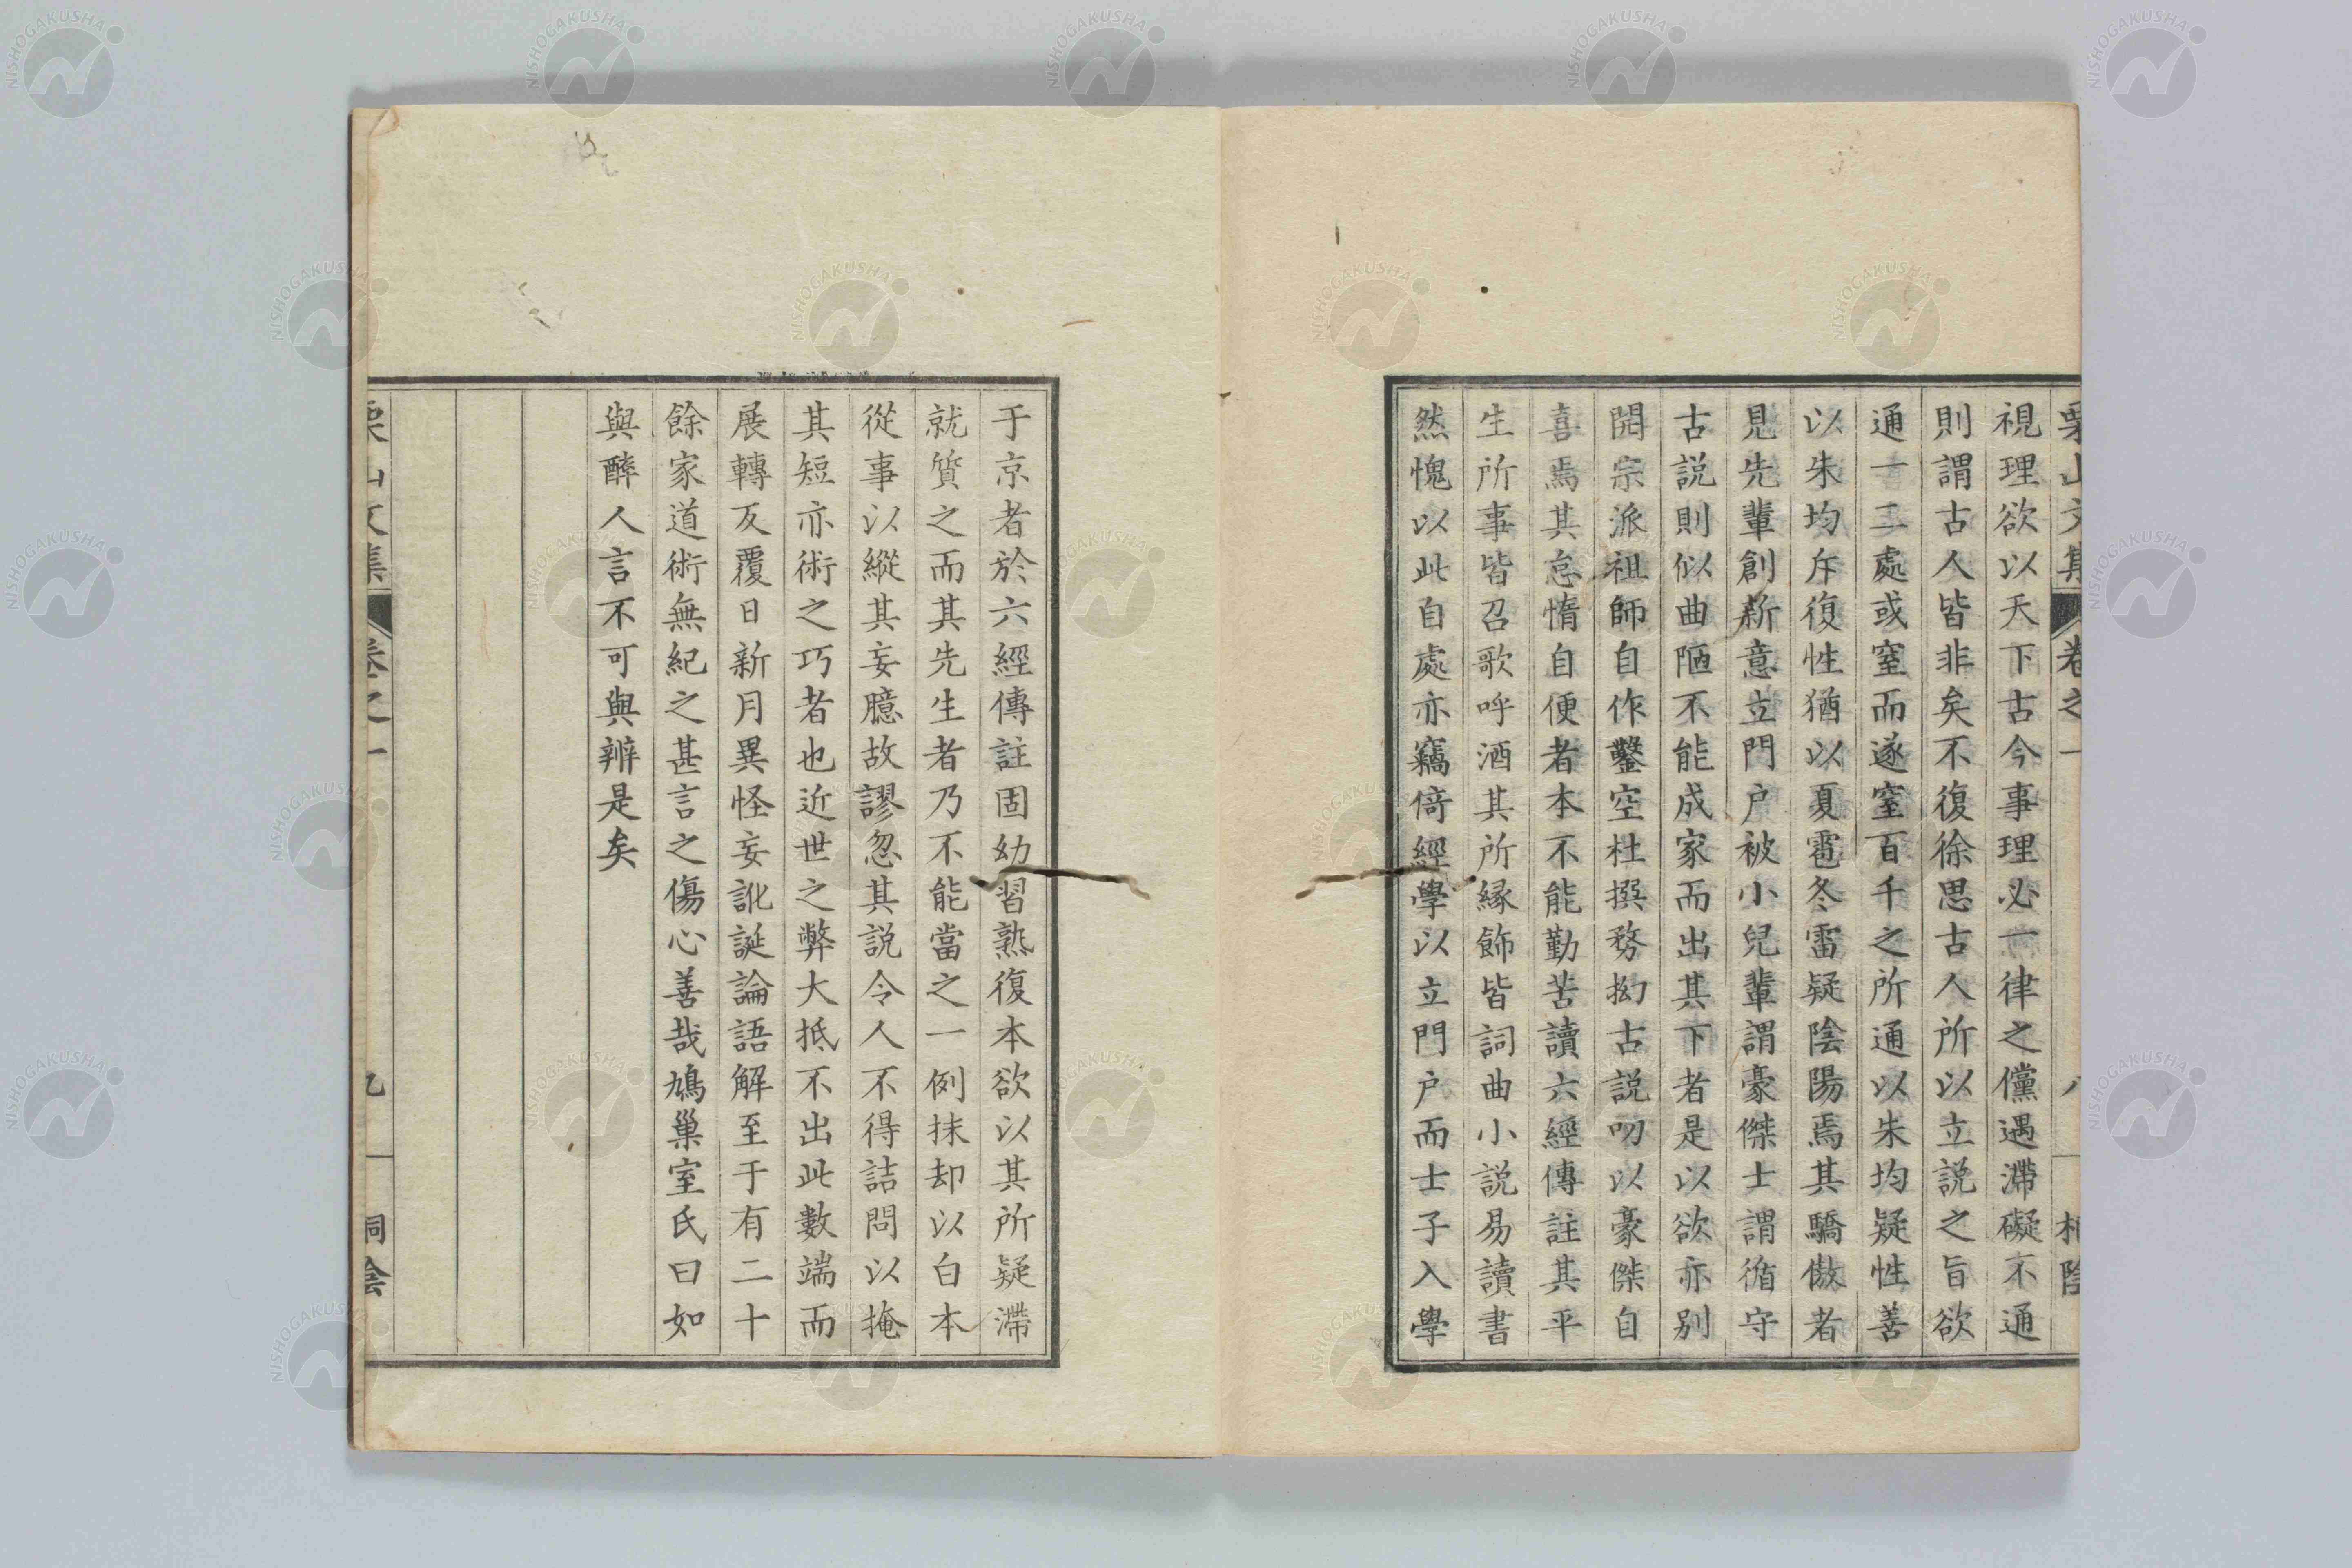 視理欲以天下古今事理必一律之儻遇滯礙不通
則謂古人皆非矣不復徐思古人所以立説之旨欲
通一二處或窒而遂窒百千之所通以朱均疑性善
以朱均斥復性猶以夏雹冬雷疑陰陽焉其驕傲者
見先輩創新意立門戶被小兒輩謂豪傑士謂循守
古説則似曲陋不能成家而出其下者是以欲亦別
開宗派祖師自作鑿空杜撰務拗古説叨以豪傑自
喜焉其怠惰自便者本不能勤苦讀六經傳註其平
生所事皆召歌呼酒其所緣飾皆詞曲小説易讀書
然愧以此自處亦竊倚經學以立門戶而士子入學
于京者於六經傳註固幼習熟復本欲以其所疑滯
就質之而其先生者乃不能當之一例抹却以白本
從事以縱其妄臆故謬忽其説令人不得詰問以掩
其短亦術之巧者也近世之弊大抵不出此數端而
展轉反覆日新月異怪妄訛誕論語解至于有二十
餘家道術無紀之甚言之傷心善哉鳩巢室氏曰如
與醉人言不可與辨是矣
栗山文集 卷之一 九 桐陰
NISHOGAKUSHA